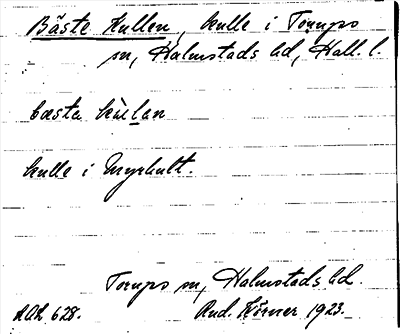 Bäste Kullen, kulle i Torups
sn, Halmstads hd, Hall. l.
bæsta kùlan
kulle i Myrhult.
Torups sn, Halmstads hd.
Rud. Körner 1923.
628.